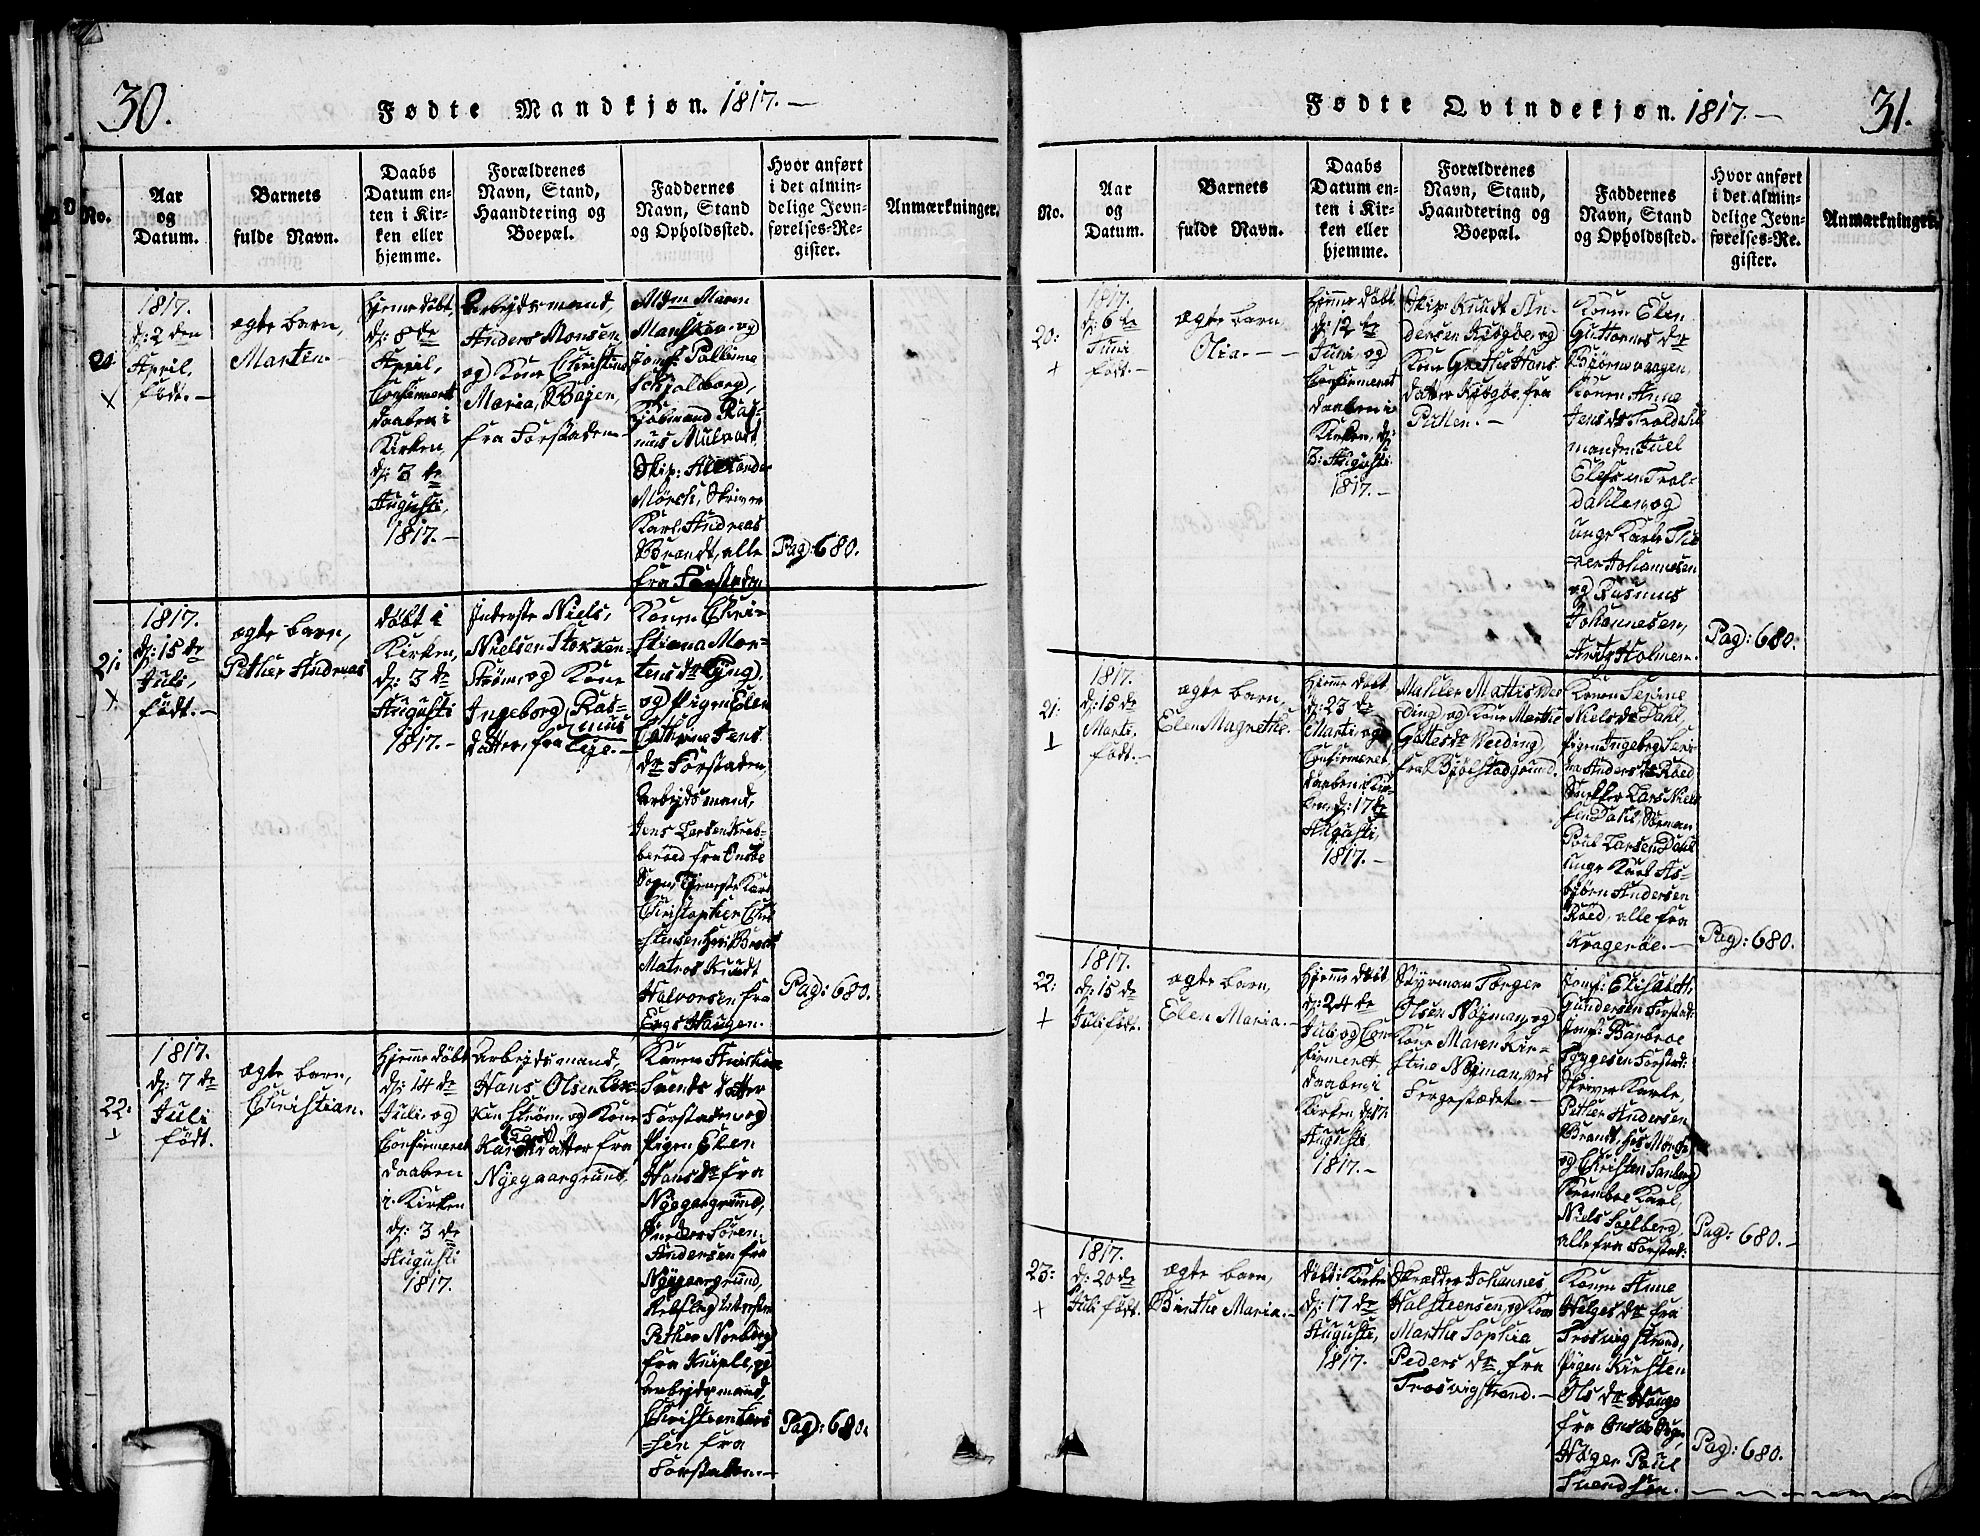 30.
Fødte Mandkjøn. 1817.—
No.
Aar
og
Datum.
Barnets
fulde Navn.
Daabs
Datum en-
ten i Kir-
ken eller
hjemme.
Forældrenes
Navn, Stand,
Haandtering og
Boepæl.
Faddernes
Navn, Stand
og Opholdssted.
Hvor anført
i det almin-
delige Jevn-
førelses-Re-
gister.
Anmærkninger.
1817.
d: 2 den
April,
født.—
ægte barn,
Marten.—
hjemedøbt,
d: 8 de
April,
Confirmeret
daaben i
Kirken,
d: 3 de
Augusti,
1817.—
Arbejdsmand,
Anders Monsen,
og Kone Christine
Maria, Bojen,
fra Forstaden—
Mdm Maren
og
Jomf:
Schjolborg,
Ras-
mus
Skip: Alexander
Mørch, Skriver
Karl Andreas
Brandt, alle
fra Forstaden
Pag: 680.
21:
X
1817.
d: 15 de
Juli,
født.—
ægte barn,
Pether Andreas
døbt i
Kirken,
d: 3 de
Augusti
1817.—
Inderste Niels,
Nielsen Stokken-
Strøm, og Kone
Ingeborg Ras-
mus
datter, fra Leje.—
Konen Chri-
stiana Mor-
tens dr Lyng,
og Pigen Elen
Cathrine Jens
dr Forstaden,
Arbejdsmand,
Jens Larsen Krab-
berød fra Onsøe
Sogn, Tieneste Karl
Christopher Chri-
stensen
Matros Knudt
Halvorsen fra
Haugen.
Pag: 680.
22:
1817.
d: 7 de
Juli
født.
ægte barn,
Christian.
Hjemme døbt
d: 14 de
Juli, og
Confirmeret
daaben
i Kirken
d: 3 de
Augusti
1817.
Arbejdsmand,
Hans Olsen
Strøm, og Kone
Kari datter fra
Nyegaargrund.
Konen
Svends datter
Forstaden og
Pigen Elen
Hans dr fra
Nyegaargrund,
Søren
Andersen fra
Nyegaargrund,
Pether Norberg
fra Kniple, og
Arbejdsmand,
Christen Lars
-sen fra
Forstaden.—
Pag: 680.
Fødte Qvindekjøn. 1817.—
31.
No.
Aar
og
Datum.
Barnets
fulde Navn.
Daabs
Datum en-
ten i Kir-
ken eller
hjemme.
Forældrenes
Navn, Stand,
Haandtering og
Boepæl.
Faddernes
Navn, Stand
og Opholdssted.
Hvor anført
i det almin-
delige Jevn-
førelses-Re-
gister.
Anmærkninger.
20:
1817.
d: 6 te
Juni
født.—
ægte barn,
Olia.—
Hjemme døbt
d: 12 te
Juni, og
Confirmeret
daaben i
Kirken, d:
3: Augusti
1817.—
Skip: Knudt An-
dersen og
Kone Grethe Hans
datter fra
Konen Elen
Guttorms dr
Konen Anne
Jens dr Troldahl
manden Juel
Elefsen Trol-
dahlen og
unge Karle
Johannesen
og Rasmus
Johannesen,
Holmen.—
Pag: 680.
21:
1817.
d: 15 de
Marti,
født.—
ægte barn,
Elen Magrethe.
Hjemme døbt
d: 23 de
Marti, og
Confirmeret
daaben i Kir-
ken, d: 17 de
Augusti,
1817.—
Mahler Mattis Wee
ding, og Kone Marthe
Gottes dr Weeding,
fra Bjølstadgrund.
Konen Serine
Niels dr Dahl,
Pigen Ingeborg Seri-
na Anders dr Røed
Lars Niel
sen Dahl, Sørman
Poul Larsen Dahl
unge Karl As-
bjørn Andersen
Røed, alle fra
Kragerøe.—
Pag: 680.
22:
1817.
d: 15 de
Juli født.
ægte barn,
Elen Maria.—
Hjemme døbt
d: 24 de
Juli og Con-
firmeret
daaben i
Kirken d: 17
Augusti,
1817.—
Styrman Torger
Olsen Nøjman, og
Kone Maren Kir-
stine Nøjman, ved
Fergestædet.—
Jomf: Elisabeth
Gundersen Forstad:
Jomf: Barbroe
Tryggesen Forstad:
Skriver Karle,
Pether Andersen
Brandt, hos
og Christen Sanberg
Kramboe Karl,
Niels Soelberg,
alle fra Forstad:
Pag: 680.—
23:
1817.
d: 20 de
Juli født.
ægte barn,
Birthe Maria.—
Døbt i Kirken
d: 17 de
Augusti,
1817.
Skrædder Johannes
Halsteensen, og Kone
Marthe Sophia
Peders dr fra
Trosvigstrand.—
Konen Anne
Helges dr fra
Trosvig strand,
Pigen Kirsten
Ols dr Hauge
fra Onsøe Sogn,
Høger Poul
Svendsen.—
Pag: 680.